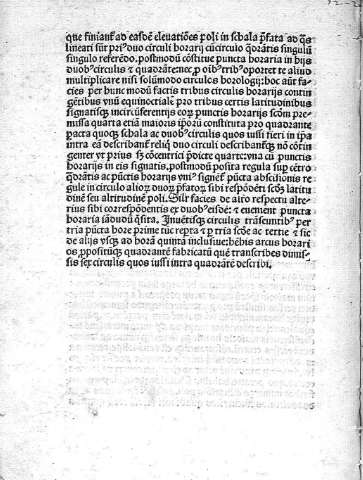 que finiant ad easdē eleuatiões poli in schala p̄fata ad q̄s
lineati sūt pri⁹ duo circuli horarij cū circulo q̄drātis singulū
singulo referēdo. postmodū cōstitue puncta horaria in hijs
duob⁹ circulis & quadrāte
multiplicare nisi solūmodo circulos horologij: hoc aūt fa-
cies per hunc modū factis tribus circulis horarijs contin
gētibus vnū equinoctialē pro tribus certis latitudinibus
signatisq̄ in circūferentijs eorū punctis horarijs scōm pre-
missa quarta etiā maioris ip̄orū constituta pro quadrante
pacta quoq̄ schala ac duob⁹ circulis quos iussi fieri in ip̄a
intra eā describant̄ reliq̄ duo circuli describantq̄ nō cōtin
gentes
horarijs in eis signatis, postmodū posita regula sup cētro
q̄drātis ac pūctis horarijs vni⁹ signent̄ pūcta abscisionis re
gule in circulo alio
dinē seu altitudinē poli. Silr facies de alio respectu alte-
rius sibi correspōdentis ex duob⁹ eisdē: & euenient puncta
horaria iādudū q̄sita. Inuētisq̄ circulis trāseuntib⁹ per
tria pūcta hore prime tūc repta & p tria scōe ac tertie & sic
de alijs vsq̄ ad horā quintā inclusiue: hēbis arcus horari
os ꝓpositūq̄ quadrantē fabricatū quē transcribes dimis-
sis sex circulis quos iussi intra quadrātē describi.